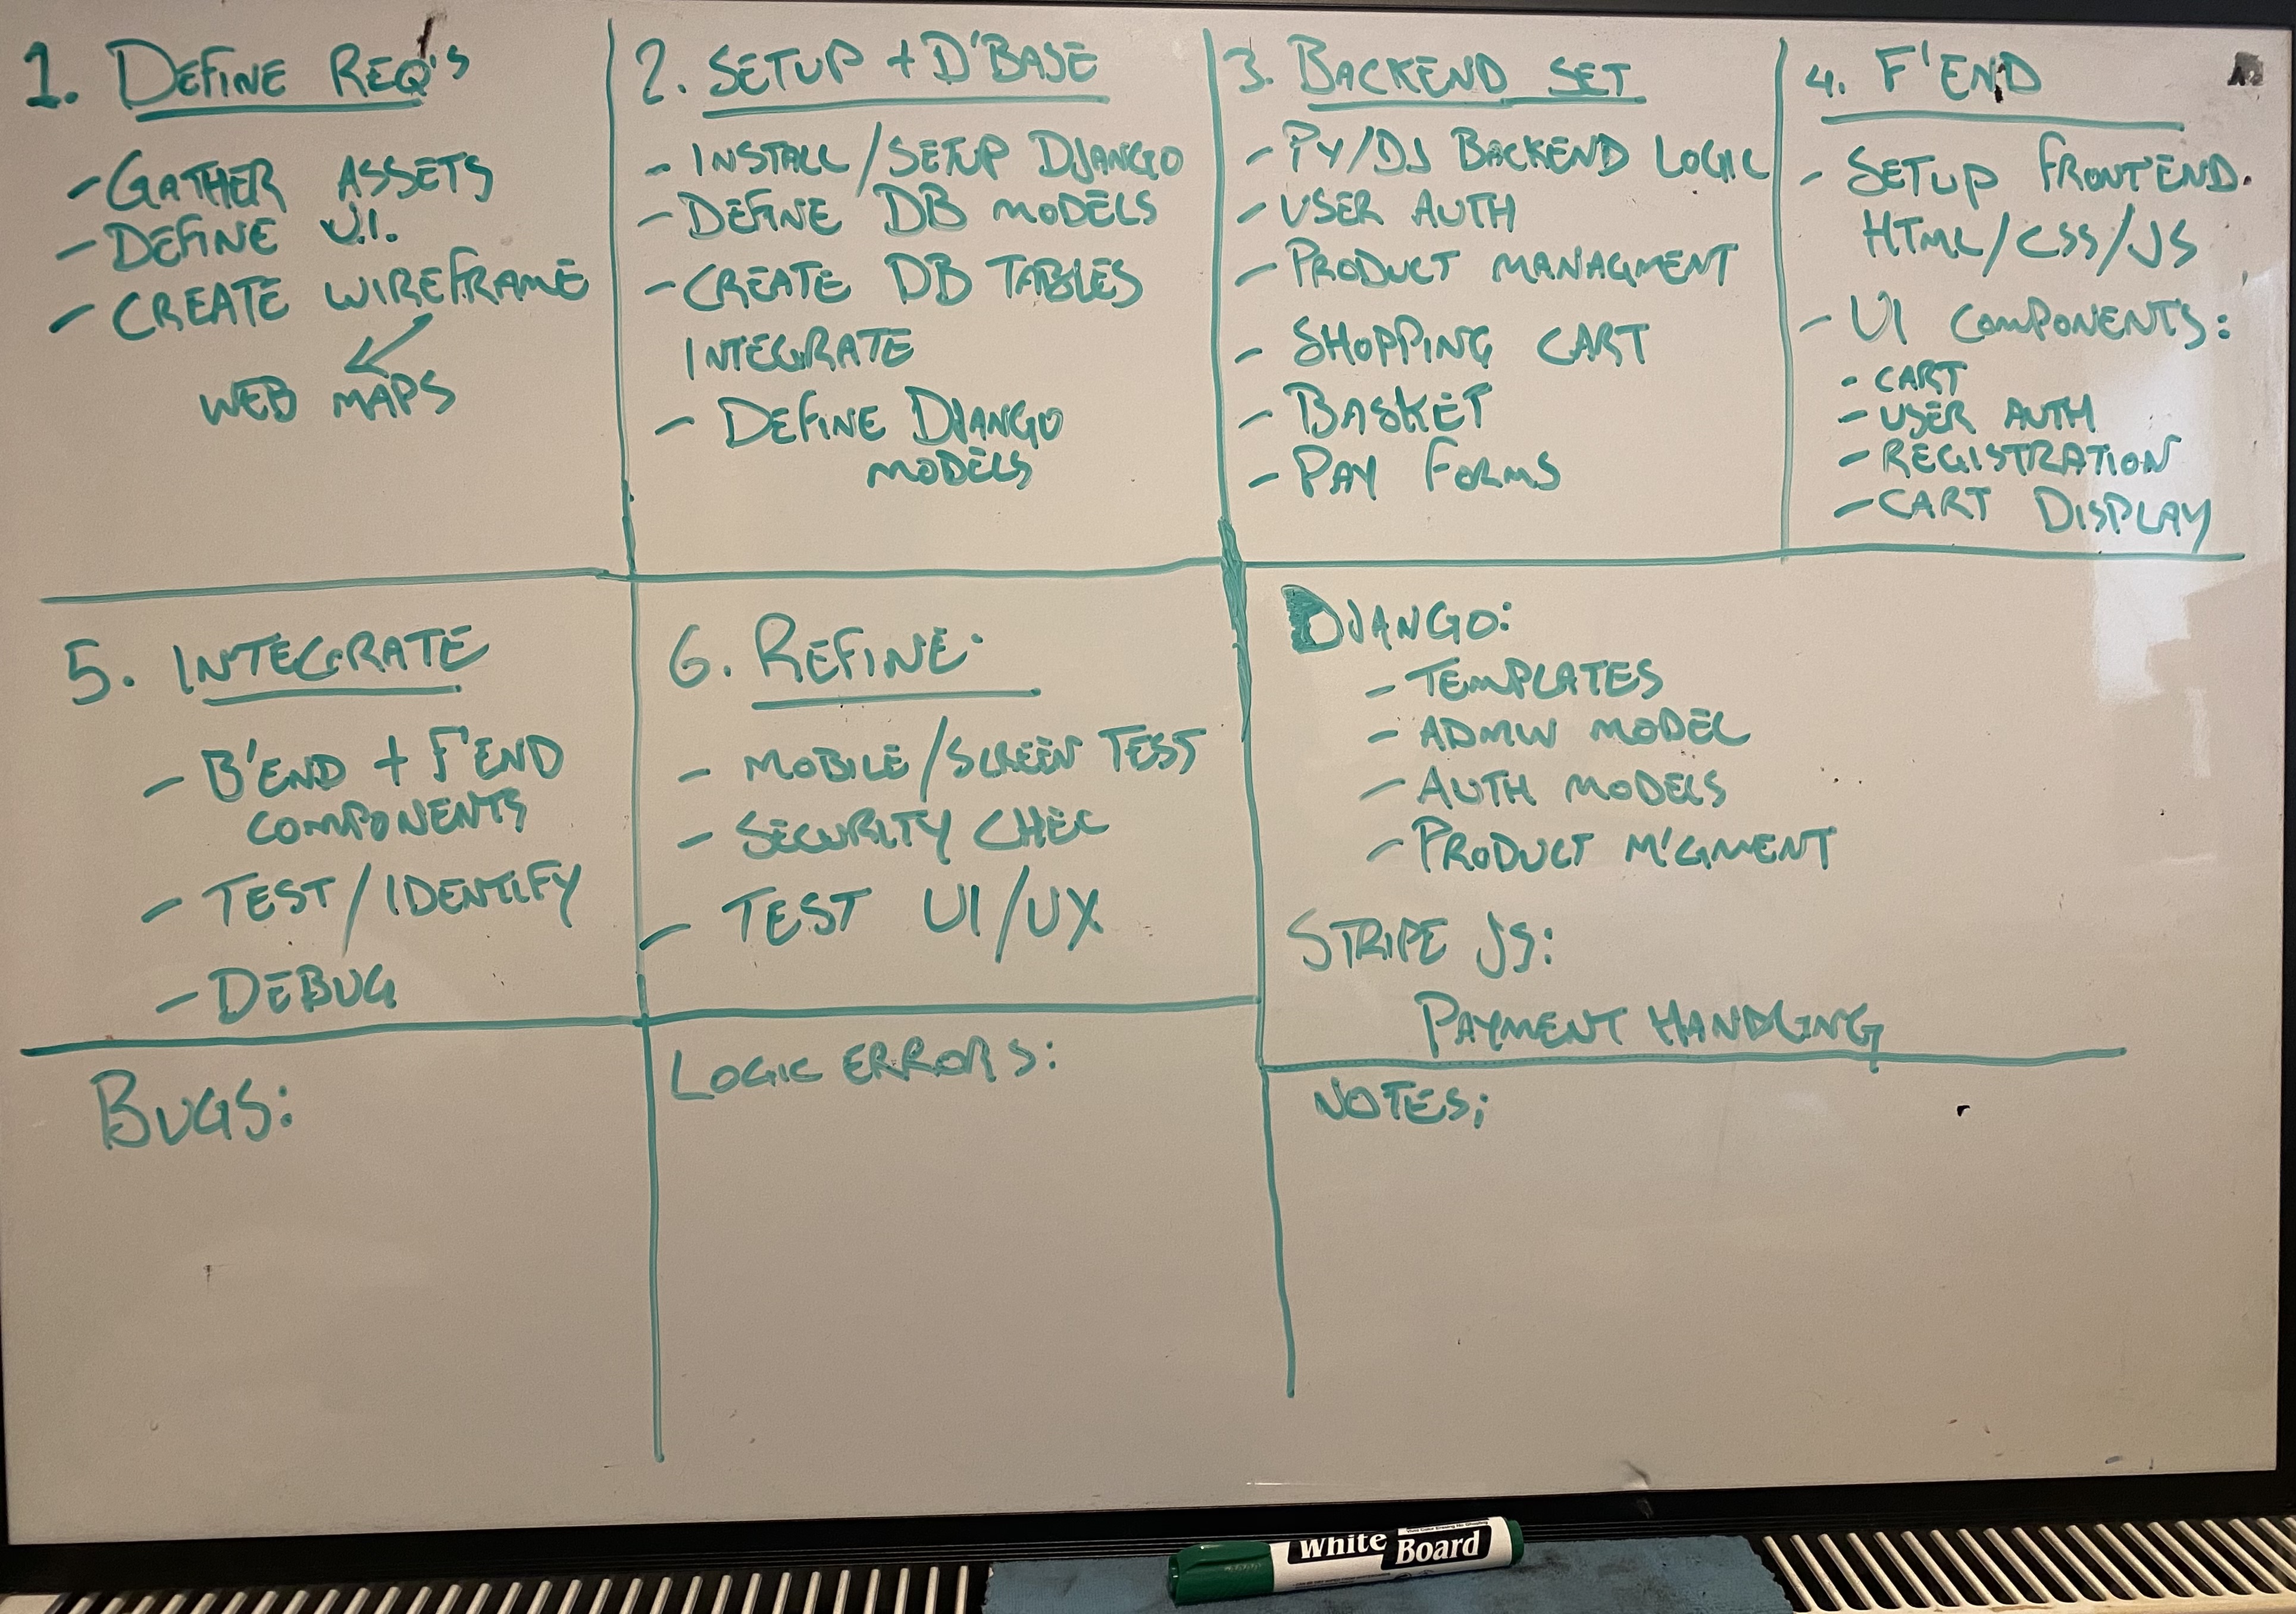 1. DEFINE REQ'S
- GATHER ASSETS
- DEFINE U.I.
- CREATE WIREFRAME
WEB MAPS
2. SETUP + D'BASE
- INSTALL/SETUP DJANGO
- DEFINE DB MODELS
- CREATE DB TABLES
INTEGRATE
- DEFINE DJANGO
MODELS
3. BACKEND SET
- PY/DJ BACKEND LOGIC
- USER AUTH
- PRODUCT MANAGMENT
- SHOPPING CART
- BASKET
- PAY FORMS
4. F'END
- SETUP FRONTEND.
HTML/CSS/JS
- UI COMPONENTS:
- CART
- USER AUTH
- REGISTRATION
- CART DISPLAY
5. INTEGRATE
- B'END + F'END
COMPONENTS
- TEST/IDENTIFY
- DEBUG
6. REFINE:
- MOBILE/SCREEN TEST
- SECURITY CHEC
- TEST UI/UX
DJANGO:
- TEMPLATES
- ADMIN MODEL
- AUTH MODELS
- PRODUCT M'GMENT
STRIPE JS:
PAYMENT HANDLING
BUGS:
LOGIC ERRORS:
NOTES;
White Board